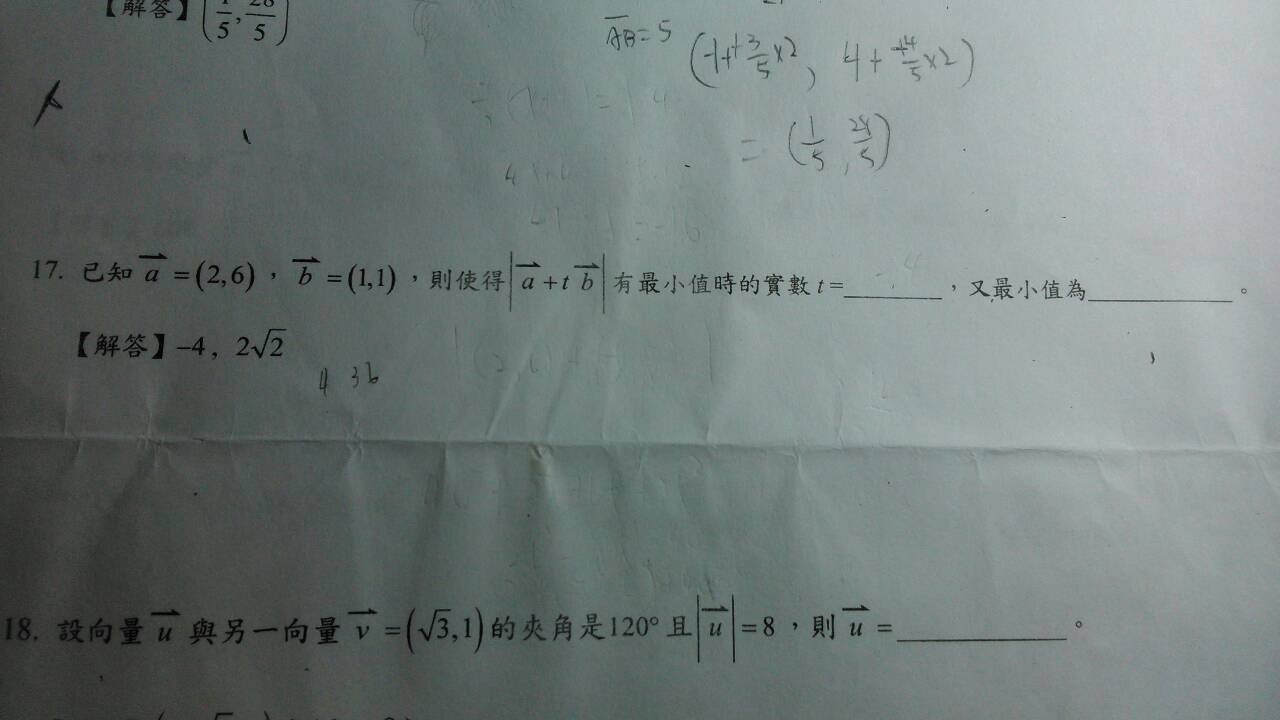 【解答】(1/5, 28/5)
AB=5
(-1+3/5×2, 4+4/5×2)
=(1/5, 28/5)
17. 已知 a⃗ =(2,6)，b⃗ =(1,1)，則使得|a⃗ +t b⃗|有最小值時的實數 t=________，又最小值為____________。
【解答】–4，2√2
4 36
18. 設向量 u⃗ 與另一向量 v⃗ =(√3,1)的夾角是120°且|u⃗|=8，則 u⃗ =______________。